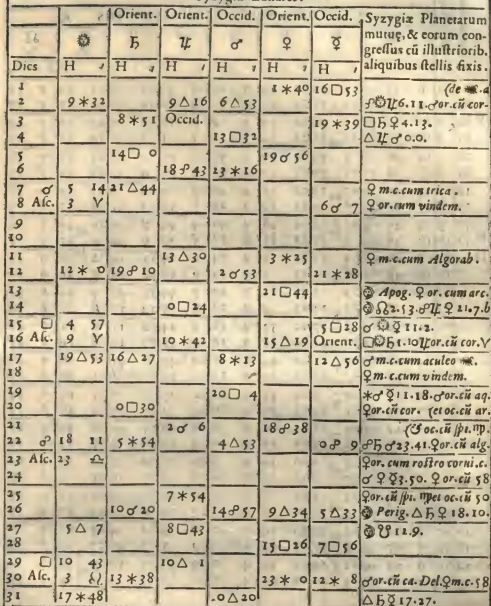 Orient. Orient. Occid. Orient. Occid. Syzygiæ Planetarum
☼ ♄ ♃ ♂ ♀ ☿ mutuę, & eorum con-
gressus cū illustriorib.
Dies H H H H H H aliquibus stellis fixis.
1 1*40 16□53
2 9*32 9△16 6△53
3 8*51 Occid. 19*39 □♄♀4.13.
4 13□32 △♃♂0.0.
5 14□0 19☌56
6 18☍43 13*16
7 ☌ 5 14 21△44 ♀m.c.cum trica.
8 Asc. 3 ♈ 6☌7 ♀or.cum vindem.
9
10
11 13△30 3*25 ♀m.c.cum Algorab.
12 12*0 19☍10 2☌53 21*28
13 21□44 Apog. ♀or.cum arc.
14 0□24
15 □ 4 57 5□28 ♂☼☿11.2.
16 Asc. 9 ♈ 10*42 15△19 Orient.
17 19△53 16△27 8*13 12△56 ♂m.c.cum aculeo
18 ♀m.c.cum vindem.
19 20□4 *♂☿11.18.♂or.cū aq.
20 0□30 ♀or.cū cor. (et oc.cū ar.
21 2☌6 18☍38
22 ☍ 18 11 5*54 4△53 0☍9 ☍♄♂23.41.♀or.cū alg.
23 Asc. 23 ♎ ♀or. cum rostro corni.c.
24 ☌♀☿3.50. ♀or.cū 58
25 7*54 ♀or.cū spi. ♍et oc.cū 50
26 10☌20 14☍57 9△34 5△33 Perig. △♄♀18.10.
27 5△7 8□43 ☋12.9.
28 15□26 7□56
29 □ 10 43 10△1
30 Asc. 3 ♌ 13*38 23*0 12*8 ♂or.cū ca.Del.♀m.c.58
31 17*48 0△20 △♄☿17.27.